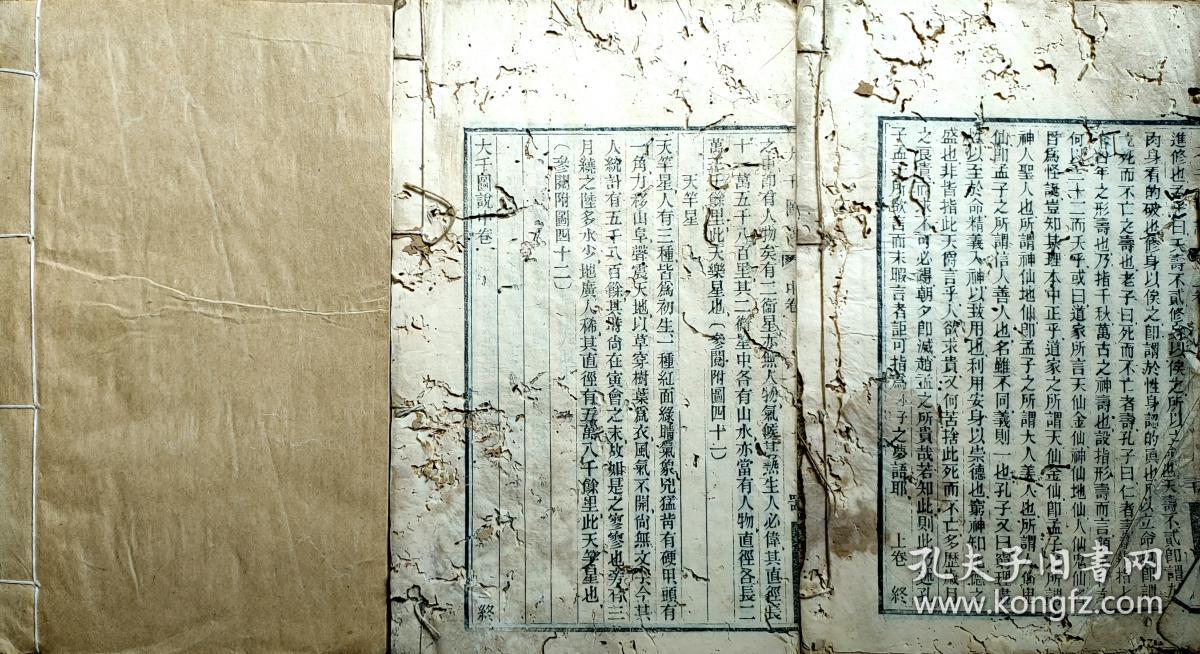 進修也孟子曰夭壽不貳修身以俟之所以立命也夭壽不貳即謂於
肉身看的破也修身以俟之即謂於性身認的真也所以立命即謂
死而不亡之壽也老子曰死而不亡者壽孔子曰仁者壽指
百年之形壽也乃指千秋萬古之神壽也設指形壽而言
何以三十二而夭乎或曰道家所言天仙金仙神仙地仙人仙仙
皆爲怪誕豈知其理本中正乎道家之所謂天仙金仙即孟子所謂
神人聖人也所謂神仙地仙即孟子之所謂大人美人也所謂人仙鬼
仙即孟子之所謂信人善人也名雖不同義則一也孔子又曰窮理盡
性以至於命精義入神以致用也利用安身以崇德也窮神知化德之
盛也非皆指此天爵言乎人欲求貴又何苦捨此死而不亡多歷歲月
之良貴而求不可必得朝夕即滅趙孟之所貴哉若知此則此孔
子孟子所欲言而未暇言者詎可指爲子之夢語耶 上卷 終
大千圖說 中卷
之中即有人物矣有二衞星亦無人物氣候甚熱生人必偉其直徑長
十一萬五千八百里其二衞星中各有山水亦當有人物直徑各長二
萬五千餘里此天樂星也(參閱附圖四十一)
天竿星
天竿星人有三種皆爲初生一種紅面綠睛氣象兇猛背有硬甲頭有
一角力移山阜聲震天地以草穿樹葉爲衣風氣不開尚無文字今其
人統計有五千八百餘其時尚在寅會之末故如是之寥寥也旁有三
月繞之陸多水少地廣人稀其直徑有五萬八千餘里此天竿星也
(參閱附圖四十二)
大千圖說中卷 終
孔夫子旧書网
www.kongfz.com